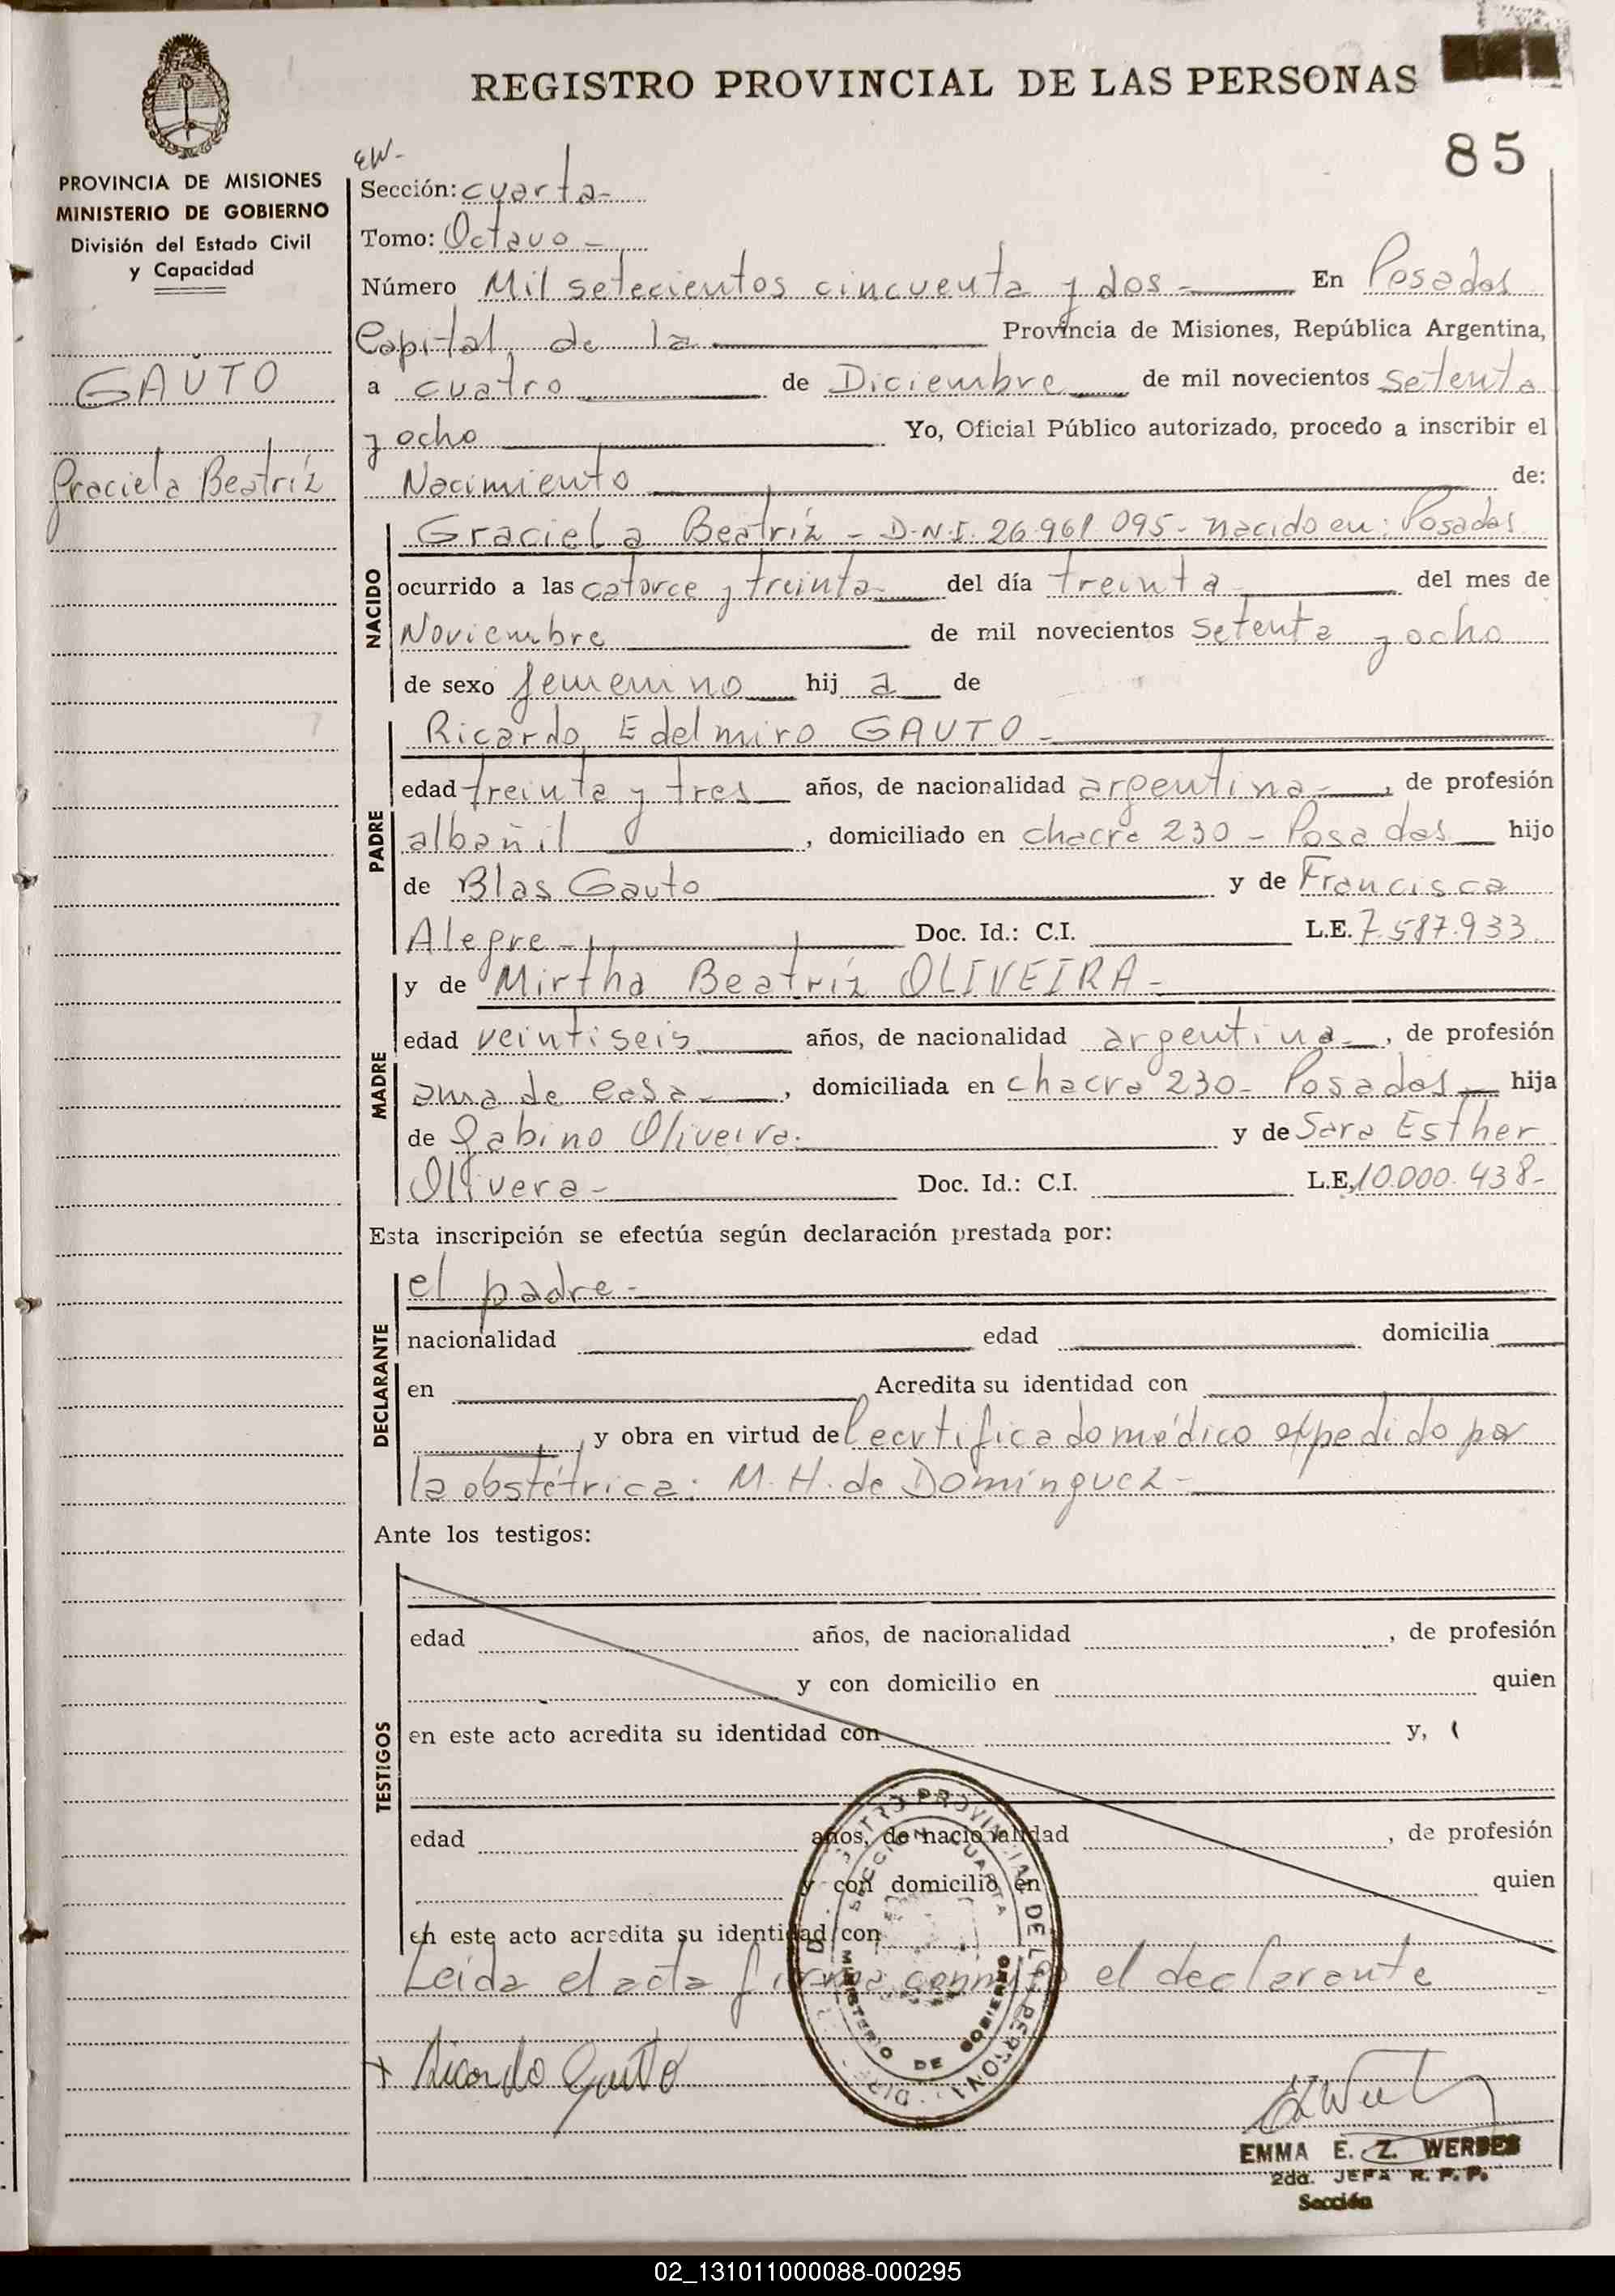 REGISTRO PROVINCIAL DE LAS PERSONAS
85
PROVINCIA DE MISIONES
MINISTERIO DE GOBIERNO
División del Estado Civil
y Capacidad
GAUTO
Graciela Beatríz
EW-
Sección: cuarta-
Tomo: Octavo-
Número Mil setecientos cincuenta y dos- En Posadas
Capital de la Provincia de Misiones, República Argentina,
a cuatro de Diciembre de mil novecientos setenta
y ocho Yo, Oficial Público autorizado, procedo a inscribir el
Nacimiento de:
NACIDO
Graciela Beatríz - D.N.I. 26.961.095- nacido en: Posadas
ocurrido a las catorce y treinta del día treinta- del mes de
Noviembre de mil novecientos setenta y ocho
de sexo femenino hij a de
PADRE
Ricardo Edelmiro GAUTO-
edad treinta y tres años, de nacionalidad argentina-, de profesión
albañil, domiciliado en chacra 230 - Posadas hijo
de Blas Gauto y de Francisca
Alegre- Doc. Id.: C.I. L.E. 7.587.933
MADRE
y de Mirtha Beatríz OLIVEIRA-
edad veintiseis años, de nacionalidad argentina-, de profesión
ama de casa-, domiciliada en chacra 230- Posadas- hija
de Gabino Oliveira. y de Sara Esther
Olivera- Doc. Id.: C.I. L.E. 10.000.438-
Esta inscripción se efectúa según declaración prestada por:
DECLARANTE
el padre-
nacionalidad edad domicilia
en Acredita su identidad con
, y obra en virtud del certificado médico expedido por
la obstétrica: M. H. de Domínguez-
Ante los testigos:
TESTIGOS
edad años, de nacionalidad , de profesión
y con domicilio en quien
en este acto acredita su identidad con y,
edad años, de nacionalidad , de profesión
y con domicilio en quien
en este acto acredita su identidad con
Leída el acta firma conmigo el declarante
PROVINCIAL DE LAS PERSONAS
SECCION CUARTA
MINISTERIO DE GOBIERNO
x Ricardo Gauto
EMMA E. Z. WERBES
2da. JEFA R. P. P.
Sección
02_131011000088-000295